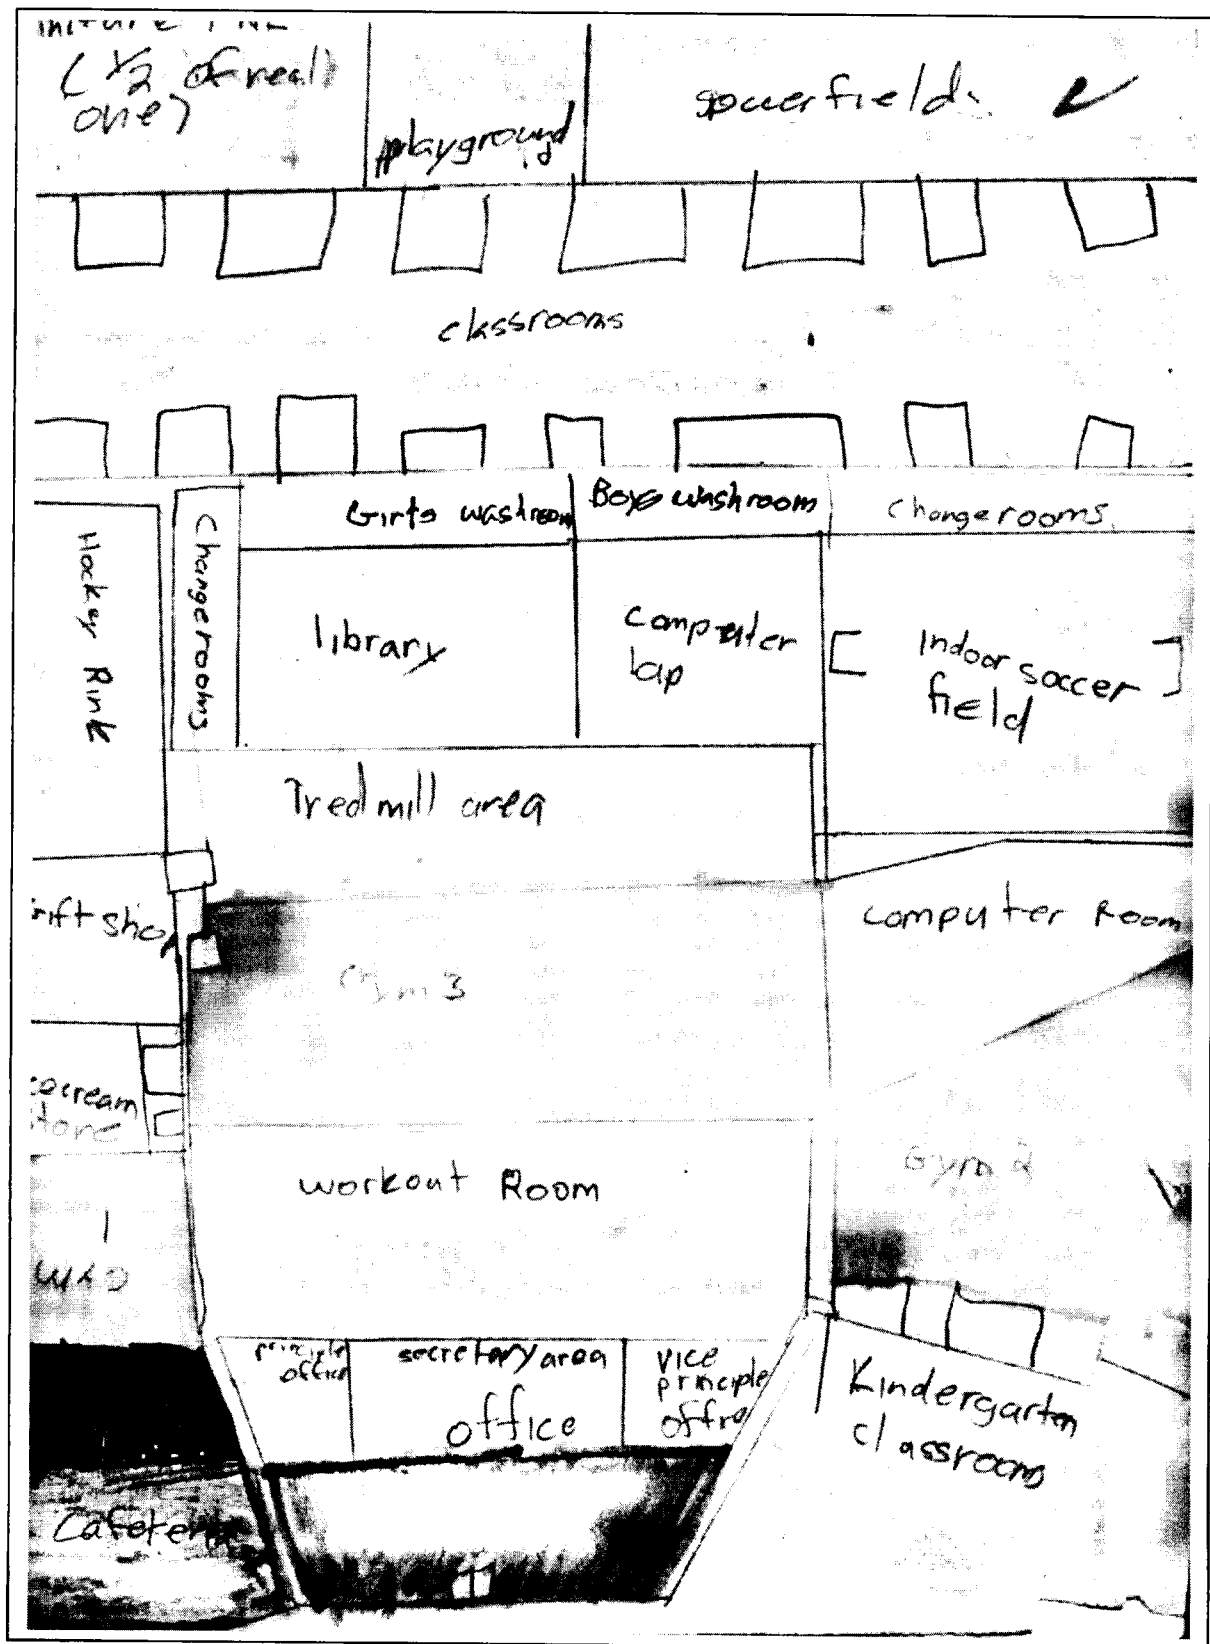 (1/2 of real
one)
playground
soccerfield
classrooms
Girls washroom
Boys washroom
Changerooms
Hockey Rink
Changerooms
library
computer
lap
Indoor soccer
field
Tredmill area
computer Room
Gym 3
workout Room
Gym 2
Gym 1
principle
office
secretary area
office
vice
principle
Kindergarten
classrooms